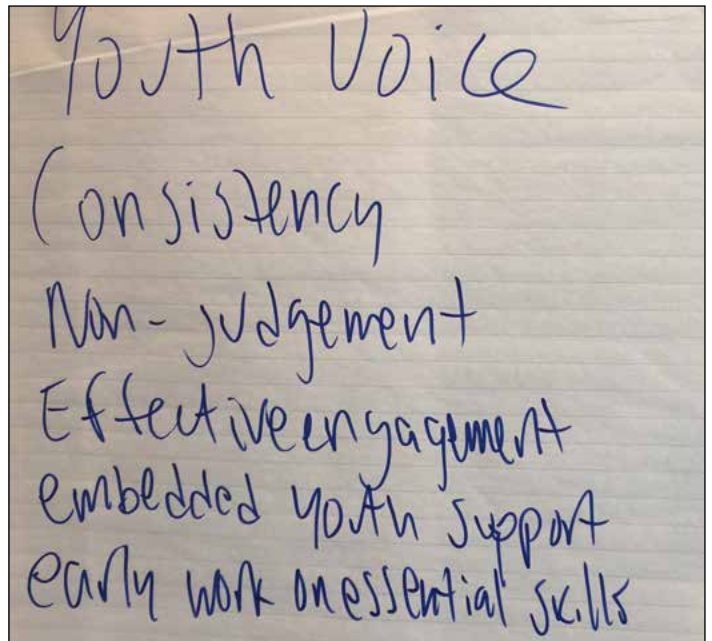 Youth Voice
Consistency
Non-judgement
Effective engagement
embedded youth support
early work on essential skills